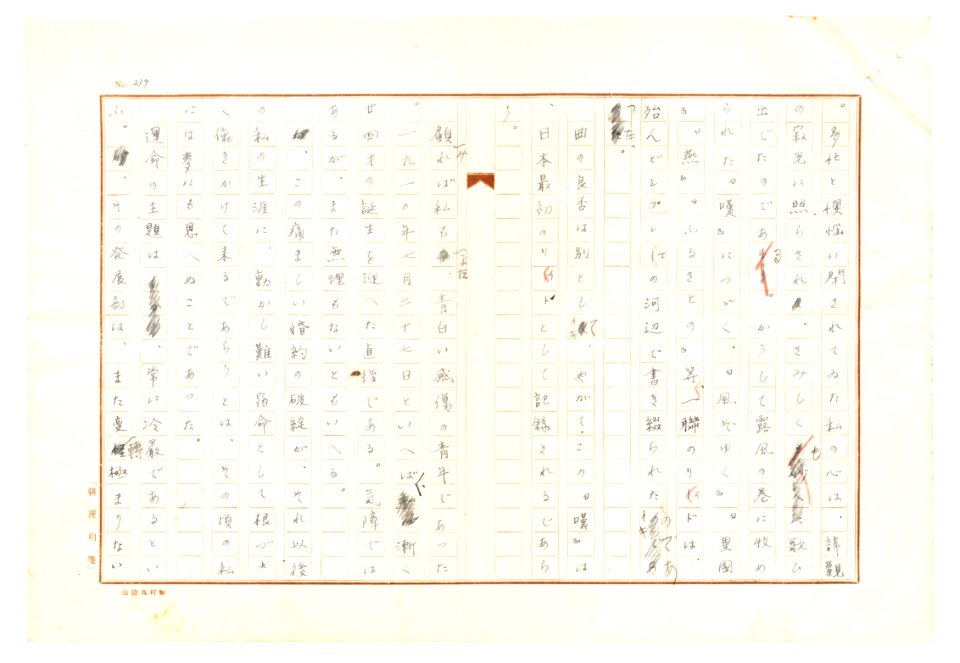 No. 279
。多忙と懊悩に閉されてゐた私の心は、諦観
の寂光に照らされ、さみしくも歌ひ
出でたのである。かうして露風の巻に収め
られた『嘆』につづく、『風ぞゆく』『異国
』『燕』『ふるさとの』等一聯のリイドは、
殆んどシプレイの河辺で書き綴られたのであ
つた。
曲の良否は別として、やがて、この『嘆』は
、日本最初のリイドとして記録されるであら
う。
顧みれば私もまだ、青白い感傷の青年であつた
。一九一〇年七月二十七日といへば、漸く
廿四才の誕生を迎へた直後である。気障では
あるが、また無理もないともいへる。
、この痛ましい婚約の破綻が、それ以後
の私の生涯に、動かし難い宿命として根づよ
く働きかけて来るであらうとは、その頃の私
には夢にも思へぬことであつた。
運命の主題は、常に冷厳であるとい
ふ。、その発展部は、また変轉極まりない